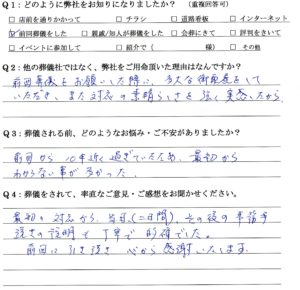 Q1：どのように弊社をお知りになりましたか？（重複回答可）
□ 店前を通りかかって □ チラシ □ 道路看板 □ インターネット
☑ 前回葬儀をした □ 親戚/知人が葬儀をした □ 会葬にきて □ 評判をきいて
□ イベントに参加して □ 紹介で（ 様） □ その他
Q2：他の葬儀社ではなく、弊社をご用命頂いた理由はなんですか？
前回葬儀をお願いした際に、多大な御尽力をして
いただき、また対応の素晴らしさを強く実感したから
Q3：葬儀される前、どのようなお悩み・ご不安がありましたか？
前回から10年近く過ぎていたため、最初から
わからない事が多かった。
Q4：葬儀をされて、率直なご意見・ご感想をお聞かせください。
最初の対応から、当日(二日間)、その後の事務手
続きの説明も丁寧で的確でした。
前回に引き続き心から感謝いたします。